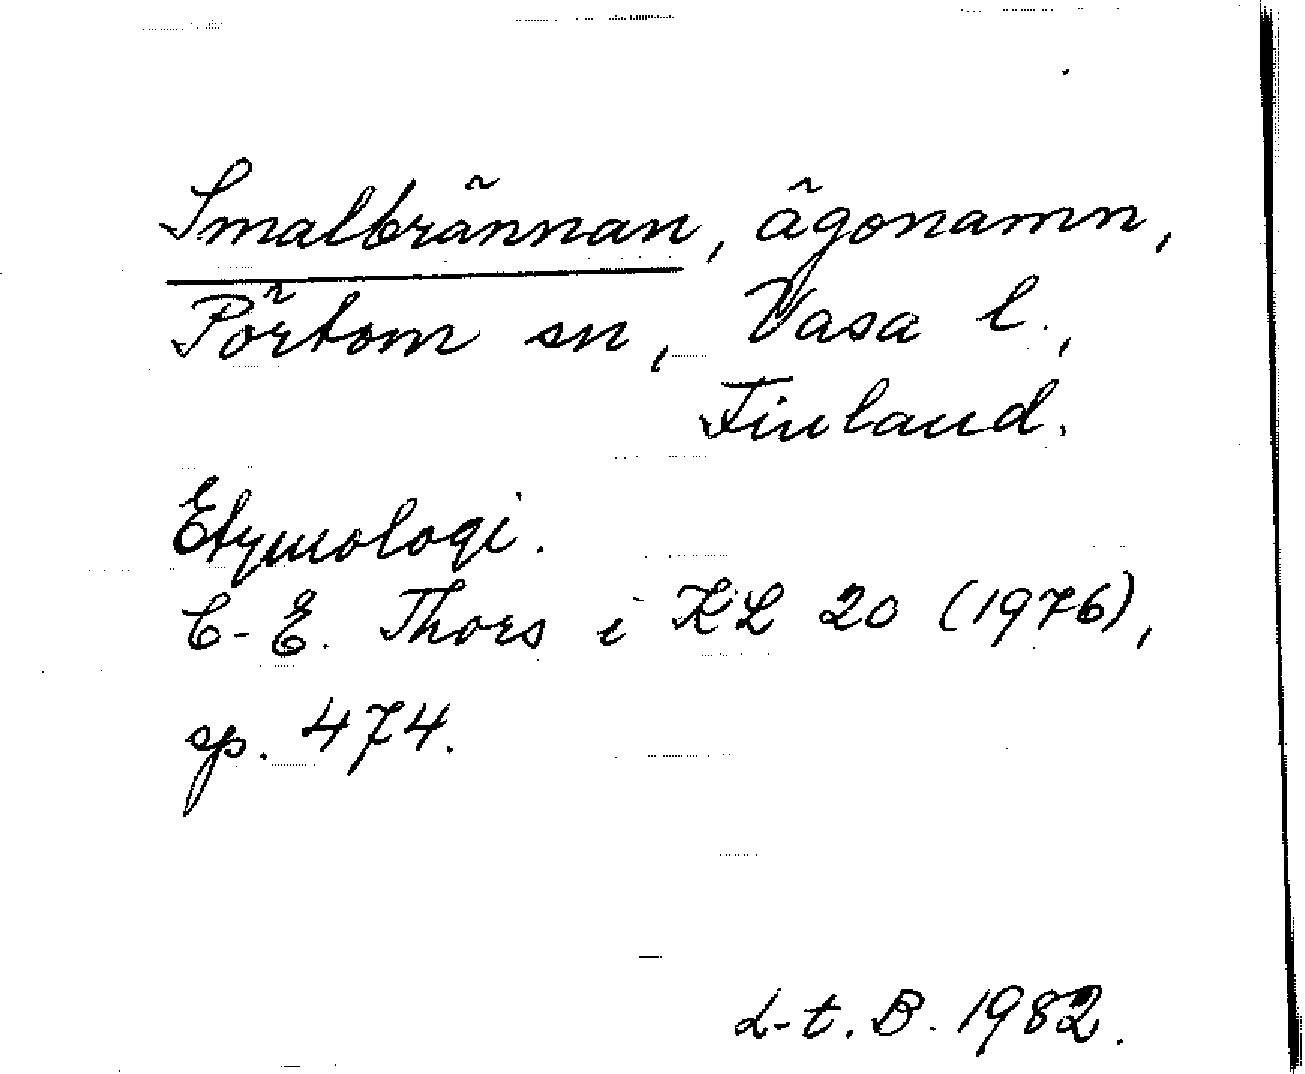 Smalbrännan, ägonamn,
Pörtom sn, Vasa l.,
Finland.
Etymologi.
C.-E. Thors i KL 20 (1976),
sp. 474.
L-t. B. 1982.